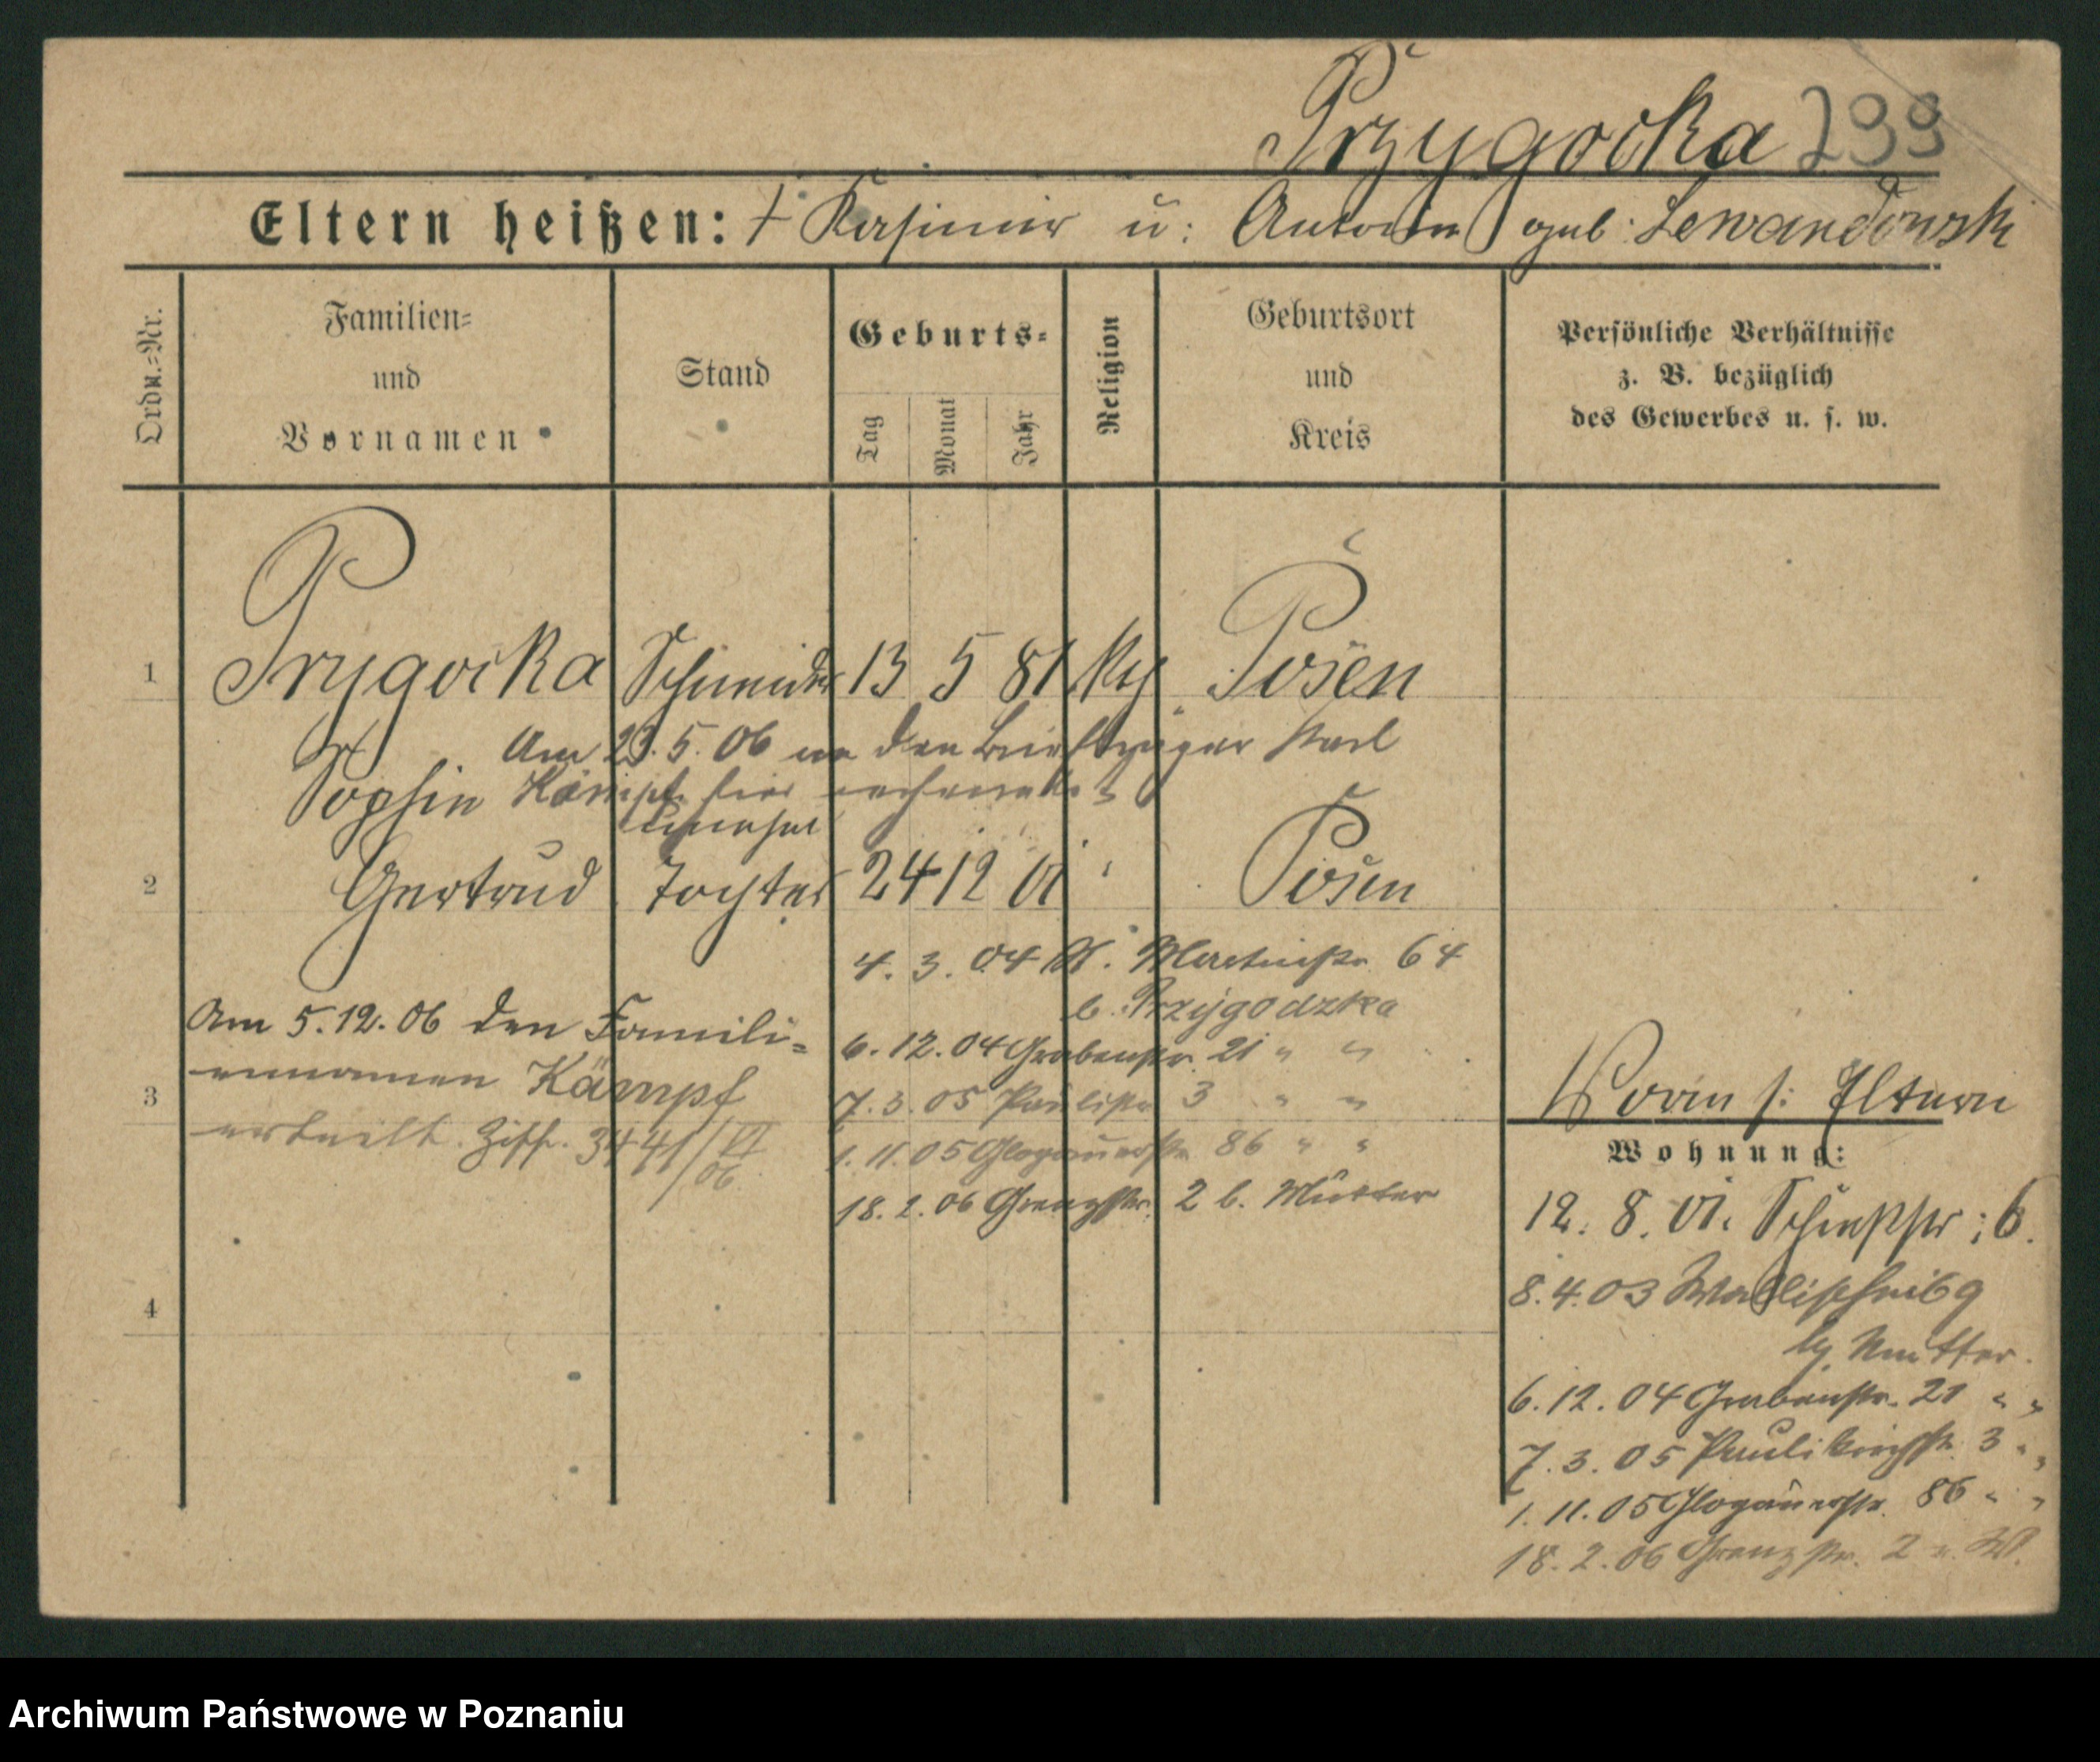 Przygocka 299
Eltern heißen: † Kasimir u: Antonie geb: Lewandowski
Ordn.=Nr.
Familien=
und
Vornamen
Stand
Geburts=
Tag
Monat
Jahr
Religion
Geburtsort
und
Kreis
Persönliche Verhältnisse
z. B. bezüglich
des Gewerbes u. s. w.
1
Prygocka Schneider 13 5 81 Posen
Am 23.5.06 an den Briefträger Karl
Sophie Kämpf hier verheiratet
2
Gertrud Tochter 24 12 01 " Posen
4. 3. 04 St. Martinstr. 64
b. Przygodzka
Am 5.12.06 den Famili=
ennamen Kämpf
erteilt. Ziff. 3441/VI
06
6.12.04 Grabenstr. 21 " "
3
7.3.05 Paulistr. 3 " "
1.11.05 Glogauerstr. 86 " "
18.2.06 Grenzstr. 2 b. Mutter
4
s: Eltern
Wohnung:
12. 8. 01. 6.
8.4.03 Wallischei 69
Mutter.
6.12.04 Grabenstr. 21 " "
7.3.05 Paulikirchstr. 3 " "
1.11.05 Glogauerstr. 86 " "
18.2.06 Grenzstr. 2
Archiwum Państwowe w Poznaniu